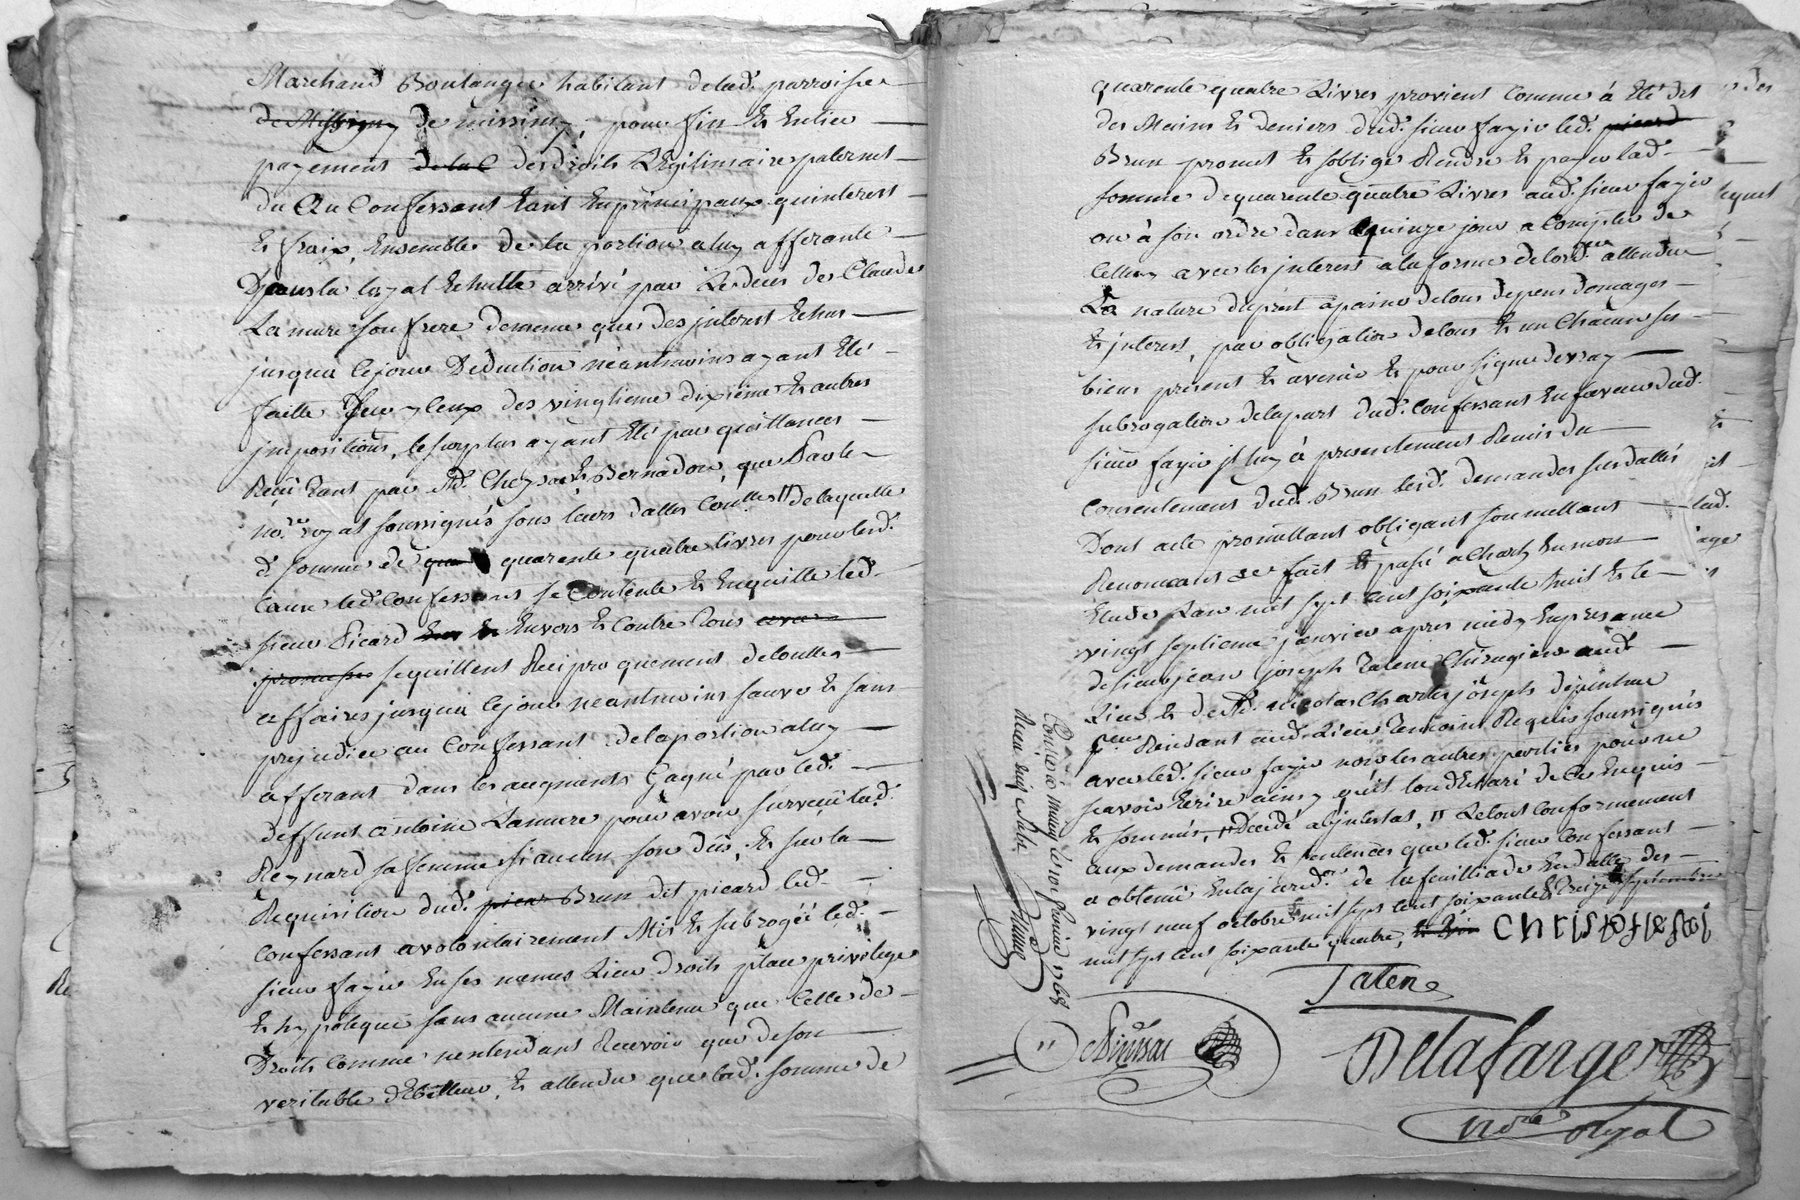 Marchand Boulanger habitant delad. parroisse
de Missigny de missimy, pour fin et entier
payement de la C des droits Legitimaires paternels
du au Confessant tant en principaux quinterest
et fraix, Ensemble de la portion a luy afferante
Dans la légat Echutte arrivé par Le deces des Claude
Lamure son frere dememe que des jnterest Echus
jusqua cejour Deduction néantmoins ayant Eté
faitte sur yceux des vingtieme dixieme et autres
jmpositions, le surplus ayant Eté par quittances
Reçû tant par Me. et Bernadon, que Par le
nore. royal soussignés sous leurs dattes Conttes. de laquelle
d. somme de qua quarente quatre livres pour lesd.
Cause led. Confessant se Contente et Enquitte led.
sieur Picard envers et Contre tous avec
promesse sequittent Reciproquement de touttes
affaires jusqua cejour néantmoins sauve et sans
prejudice au Confessant de la portion a luy
afferant dans les augments Gagné par led.
deffunt antoine Lamure pour avoir survecû lad.
Reynard sa femme fiancée son dus, et sur la
Requisition dud. picar Brun dit picard led.
Confessant a volontairement Mis et subrogéé led.
sieur fayie En ses memes Lieu droits place privilege
et hypoteque sans aucune Maintenue que Celle de
Droits Comme nentendant Recevoir que de son
veritable débitteur, et attendu que lad. somme de
quarente quatre Livres provient Comme á Eté dit
des Mains et deniers dud. sieur fayie led. picard
Brun promet et soblige Rendre et payer lad.
somme de quarente quatre Livres aud. sieur fayie
ou à son ordre dans quinze jour a Compter de
Celluy avec les jnterest a la forme de lord. attendue
La nature du prest apaine de tous depens domages
et jnterest, par obligation de tous et un Chacun ses
biens present et avenir et pour signe de vray
subrogation de la part dud. Confessant En faveur dud.
sieur fayie jl luy á presentement Remis du
Consentement dud. Brun lesd. demandes susdattés
Dont acte promettant obligant soumettant
Renoncant &c fait et passé a Charly En mon
Etude Lan mil sept cent soixante huit et le
vingt septieme janvier apres midy En presence
de sieur jean joseph Tatene Chirurgien aud.
Lieu et de Me. nicolas Charles joseph
Residant aud. Lieu temoins Requis soussignés
avec led. sieur fayie non les autres parties pour ne
scavoir Ecrire ainsy qu'il lont déclaré de Ce Enquis
et sommés, Le tout Conformement
aux demandes et sentences que led. sieur Confessant
a obtenû En la jurdon. de la feuillade En datte des
vingt neuf octobre mil sept cent soixante et treize septembre
mil sept cent soixante quatre, Christofle faj
Tatene
Delafarge
nore royal
Controlé a Millery le 1768
Reçu